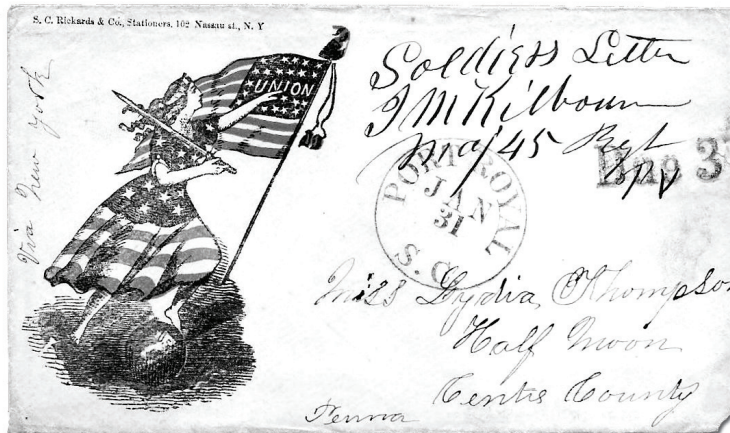 S. C. Rickards & Co., Stationers, 102 Nassau st., N. Y
Via New York
UNION
Soldiers Letter
J M Kilbourn
Maj 45 Regt
P V
Due 3
PORT ROYAL
JAN
31
S. C.
Miss Lydia Thompson
Half Moon
Centre County
Penna